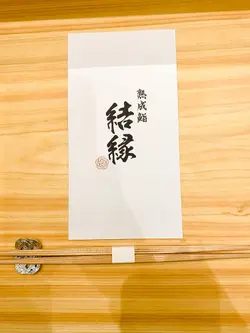 熟成鮨
結縁